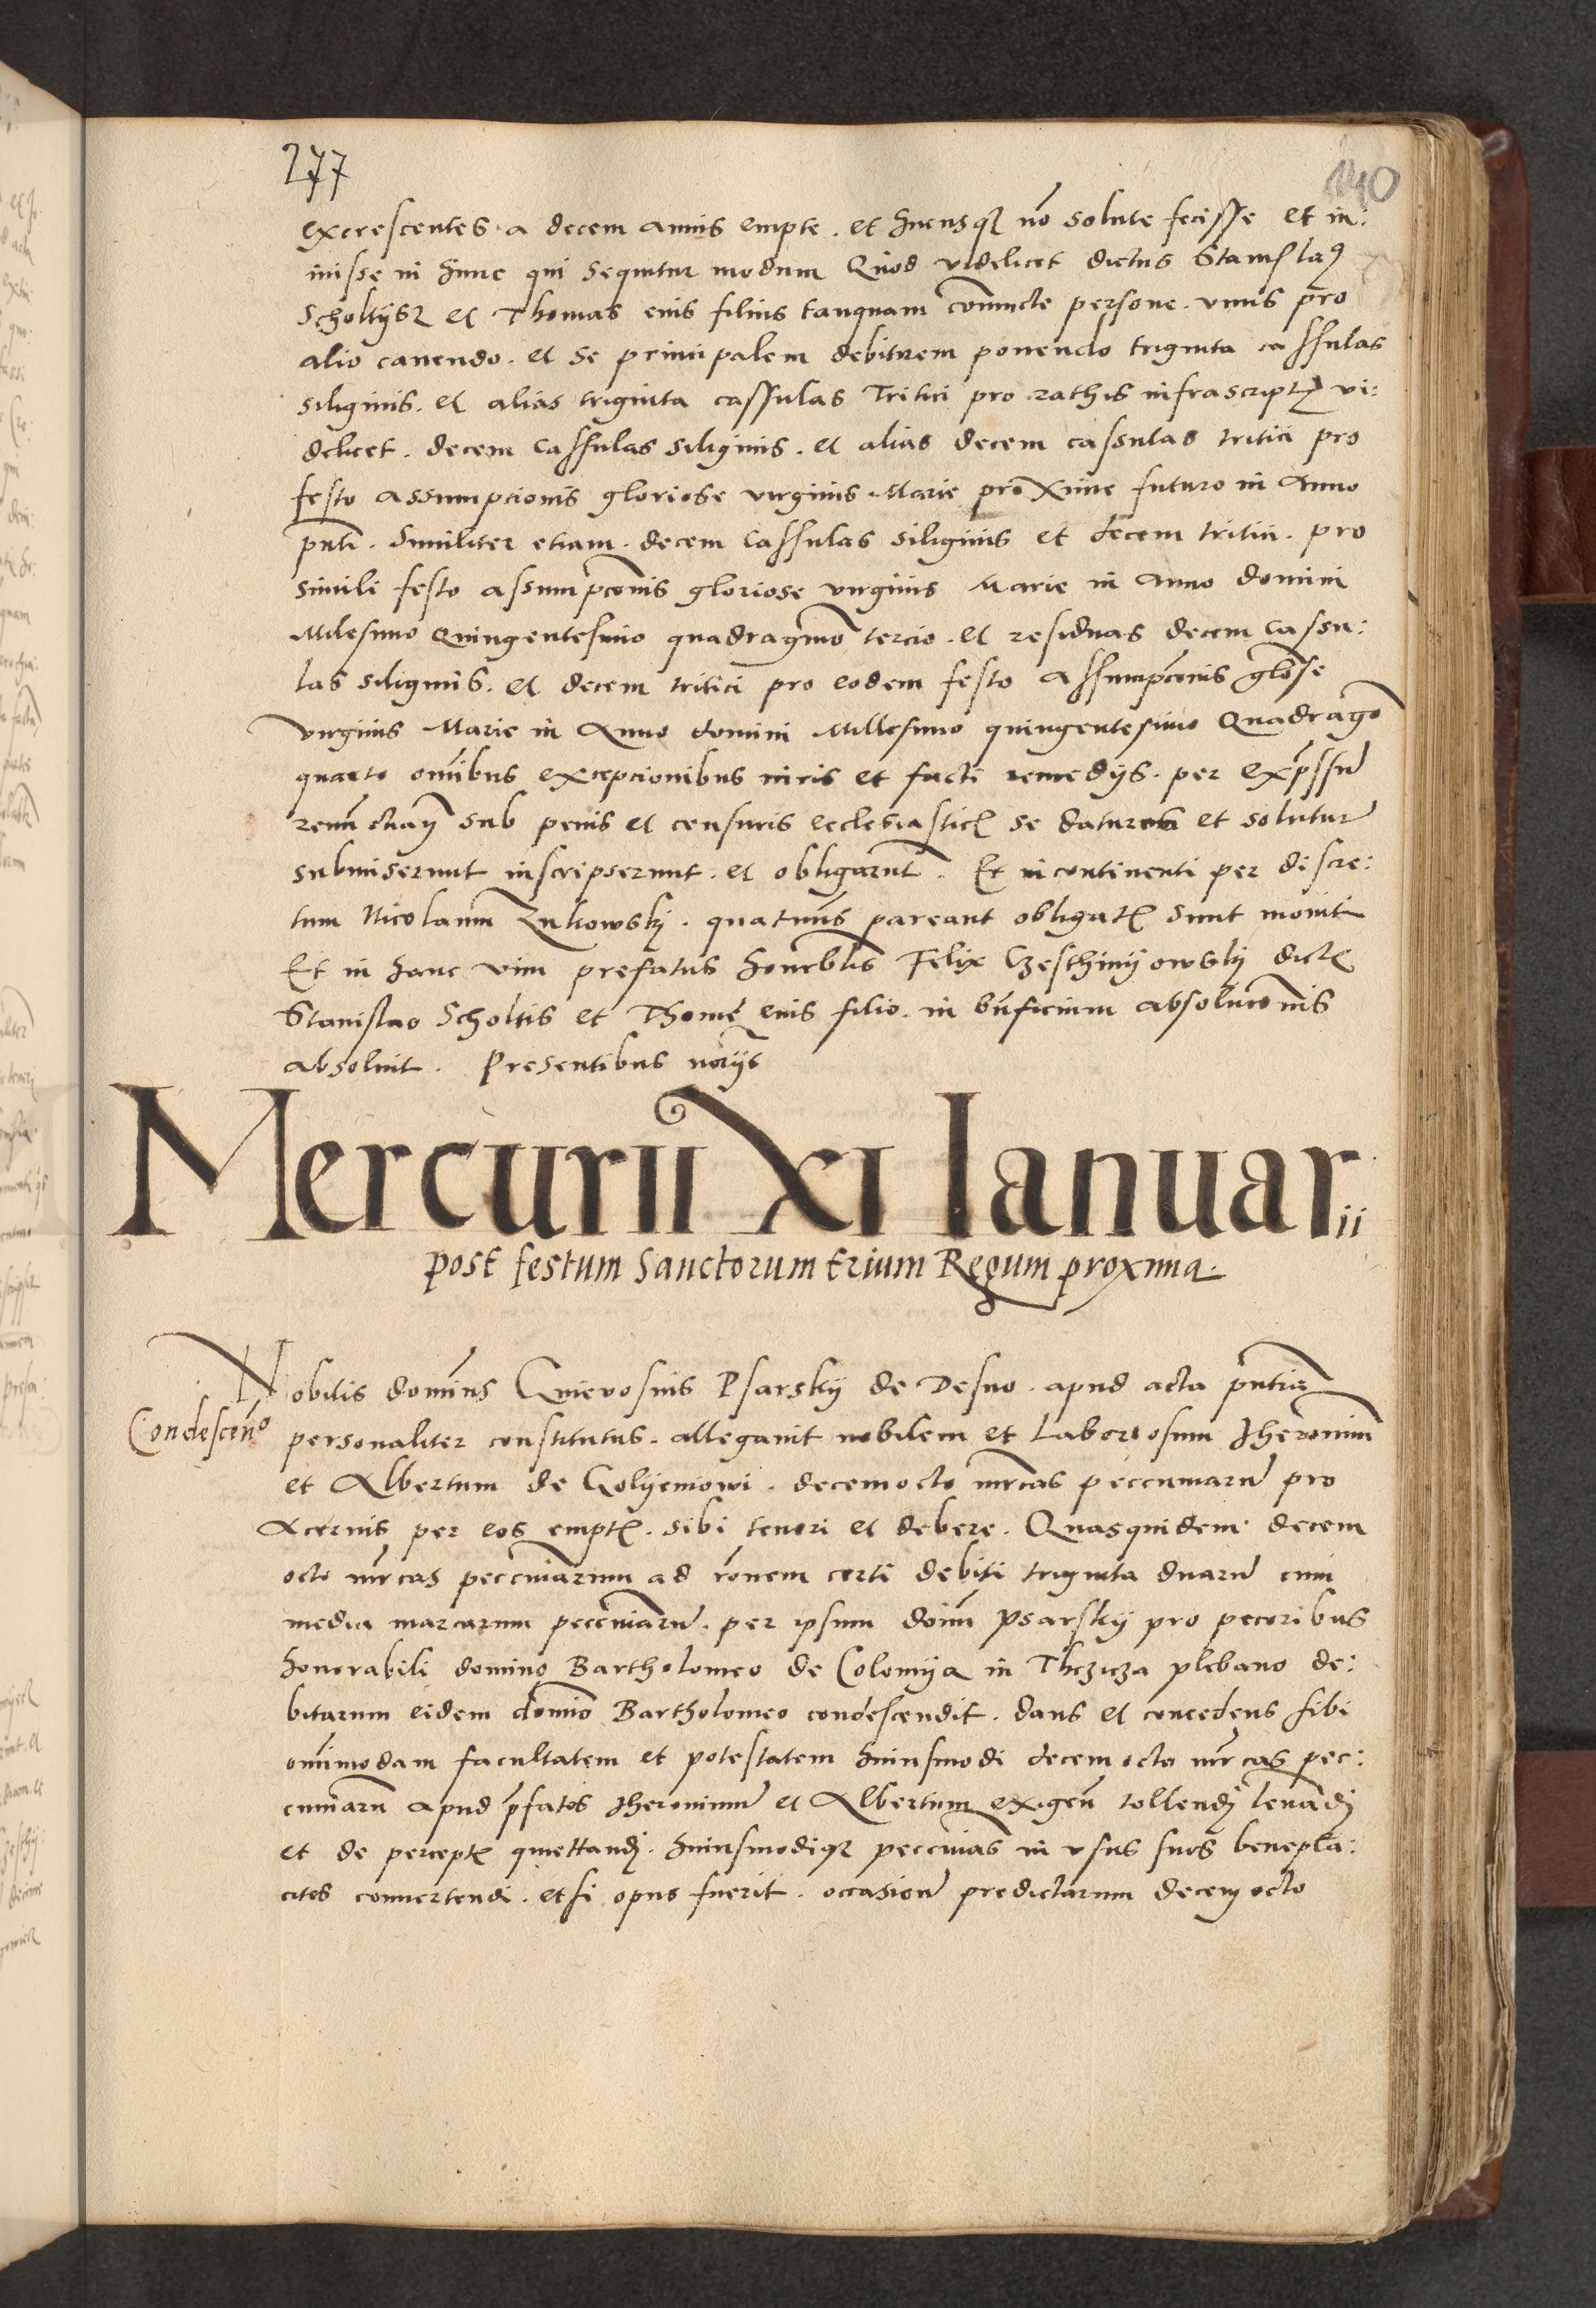 277
140
excrescentes a decem annis empte . et hucusq non solute fecisse et in:
inisse in hunc qui sequitur modum Quod videlicet dictus Stanislaus
Scholtijsz et Thomas eius filius tanquam coniuncte persone . vnus pro
alio cauendo . et se principalem debitorem ponendo triginta cassulas
siliginis . et alias triginta cassulas Tritici pro rathis infrascript vi:
delicet . decem cassulas siliginis . et alias decem cassulas tritici pro
festo assumpcionis gloriose virginis Marie proxime futuro in Anno
pnti . Similiter etiam . decem cassulas siliginis et decem tritici . pro
simili festo assumpconis gloriose virginis Marie in Anno domini
Milesimo Quingentesimo quadragmo tercio . et residuas decem cassu:
las siliginis . et decem tritici pro eodem festo assumpconis glose
virginis Marie in Anno domini Millesimo quingentesimo Quadrago
quarto omibus excepcionibus iuris et facti remedijs . per expssu
sub penis et censuris ecclesiastic se daturos et solutur
submiserunt inscripserunt . et obligarunt . Et incontinenti per discre:
tum Nicolaum Zukowskj . quatinus pareant obligat sunt moniti
Et in hanc vim prefatus honorblis Felix Czeschinijowskj dict
Stanislao Scholtis et Thome eius filio . in bnficium absoluconis
absoluit . Presentibus norijs
Mercurii XI Ianuarii
post festum Sanctorum trium Regum proxima .
Nobilis dominus Gnieuosius Psarskij de Desno . apud acta pntia
Condescen
personaliter constitutus . allegauit nobilem et Laboriosum Jheronimu
et Albertum de Golijeniowi . decemocto mrcas peccuniaru pro
Aceruis per eos empt . sibi teneri et debere . Quasquidem decem
octo mrcas peccuniarum ad ronem certi debiti triginta duaru cum
media marcarum peccuniaru . per ipsum doim Psarskij pro pecoribus
honorabili domino Bartholomeo de Colomija in Thczicza plebano de:
bitarum eidem domio Bartholomeo condescendit . dans et concedens sibi
omimodam facultatem et potestatem huiusmodi decem octo mrcas pec:
cuniaru apud pfatos Jheronimu et Albertum exigen tollendj leuadj
et de percept quiettandj . huiusmodiqz peccunias in vsus suos benepla:
citos conuertendi . et si opus fuerit . occasione predictarum decem octo